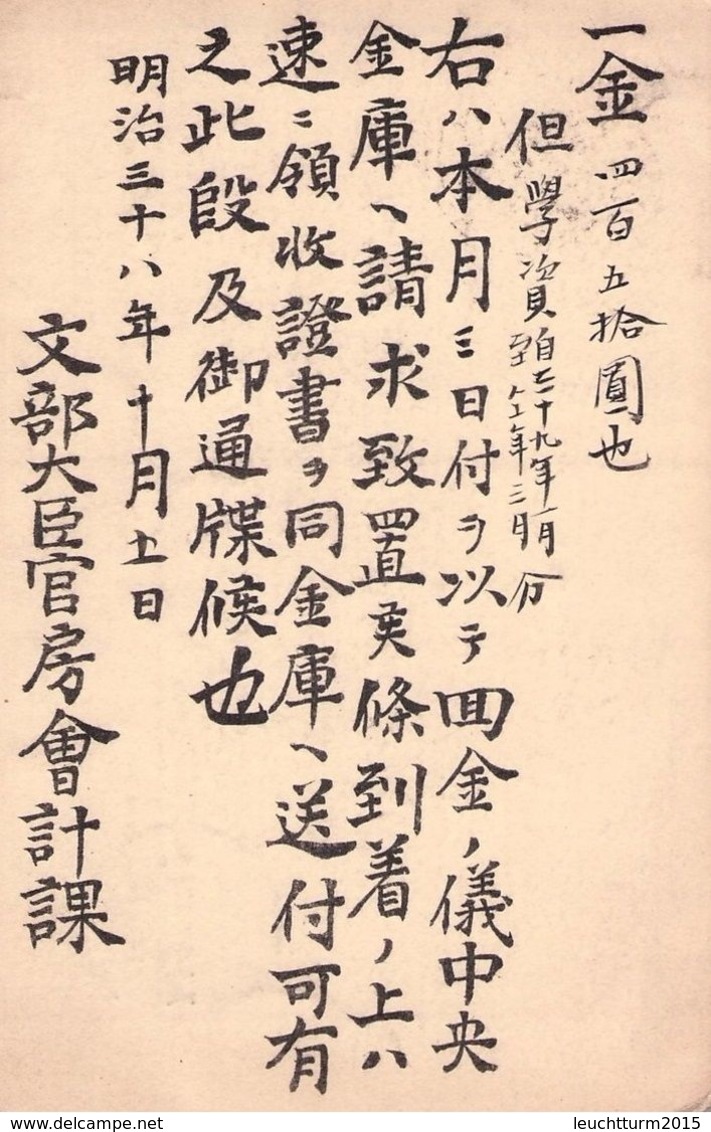 一金四百五拾圓也
但學資自三十九年一月至仝年三月分
右ハ本月三日付ヲ以テ回金ノ儀中央
金庫ヘ請求致置候條到着ノ上ハ
速ニ領收證書ヲ同金庫ヘ送付可有
之此段及御通牒候也
明治三十八年十月十一日
文部大臣官房會計課
www.delcampe.net
leuchtturm2015